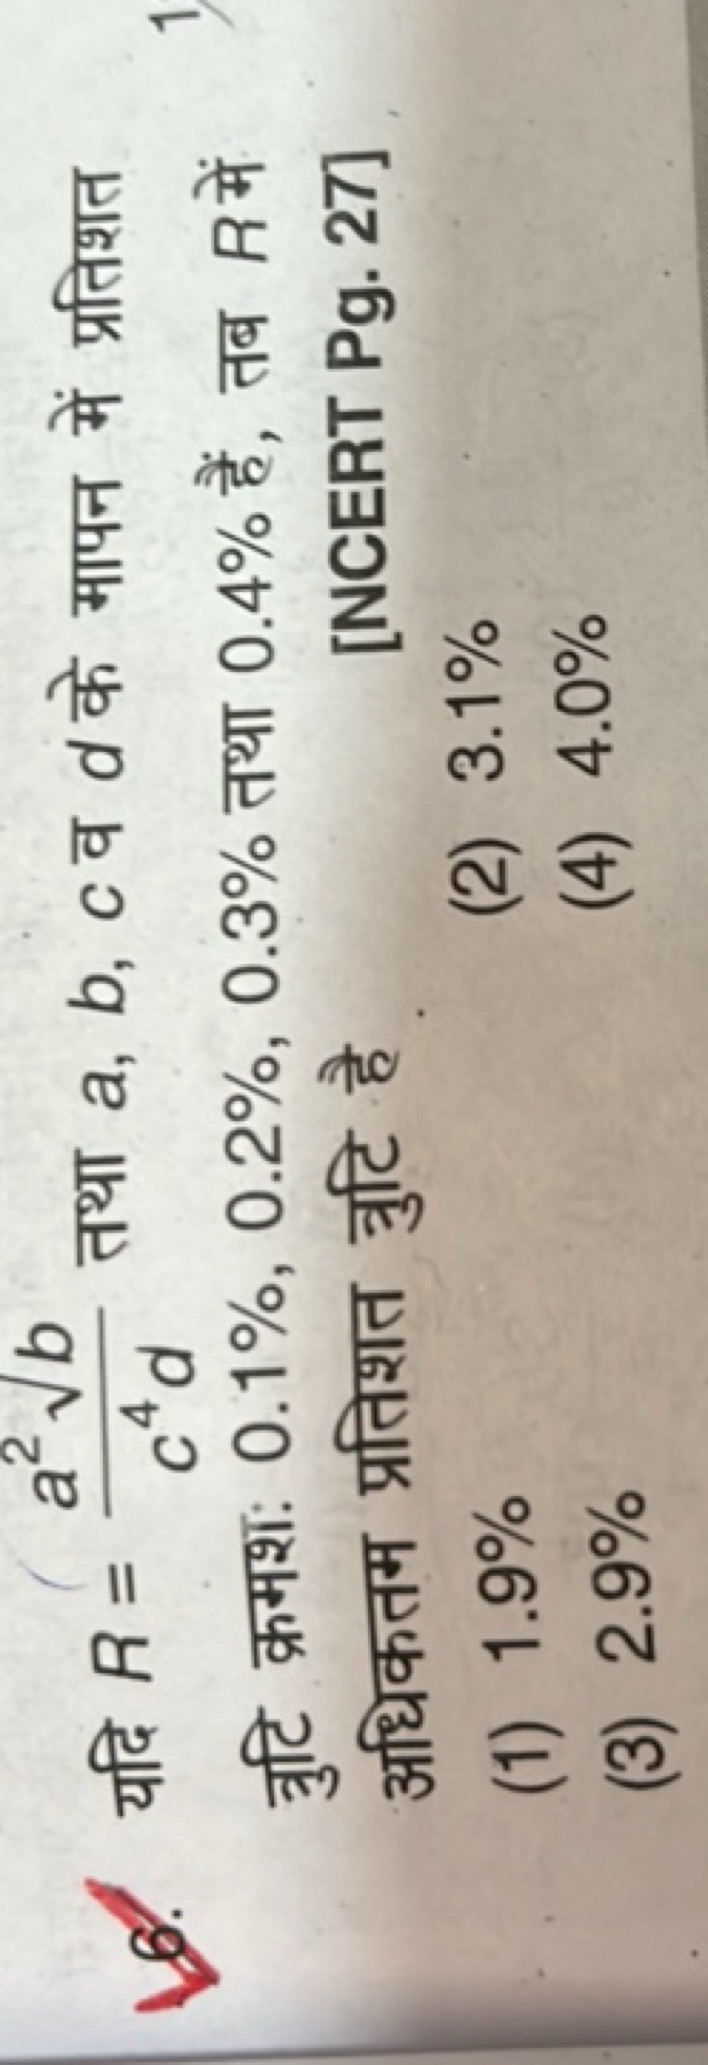 6. यदि R = a²√b / c⁴d तथा a, b, c व d के मापन में प्रतिशत
त्रुटि क्रमशः 0.1%, 0.2%, 0.3% तथा 0.4% हैं, तब R में
अधिकतम प्रतिशत त्रुटि है [NCERT Pg. 27]
(1) 1.9% (2) 3.1%
(3) 2.9% (4) 4.0%